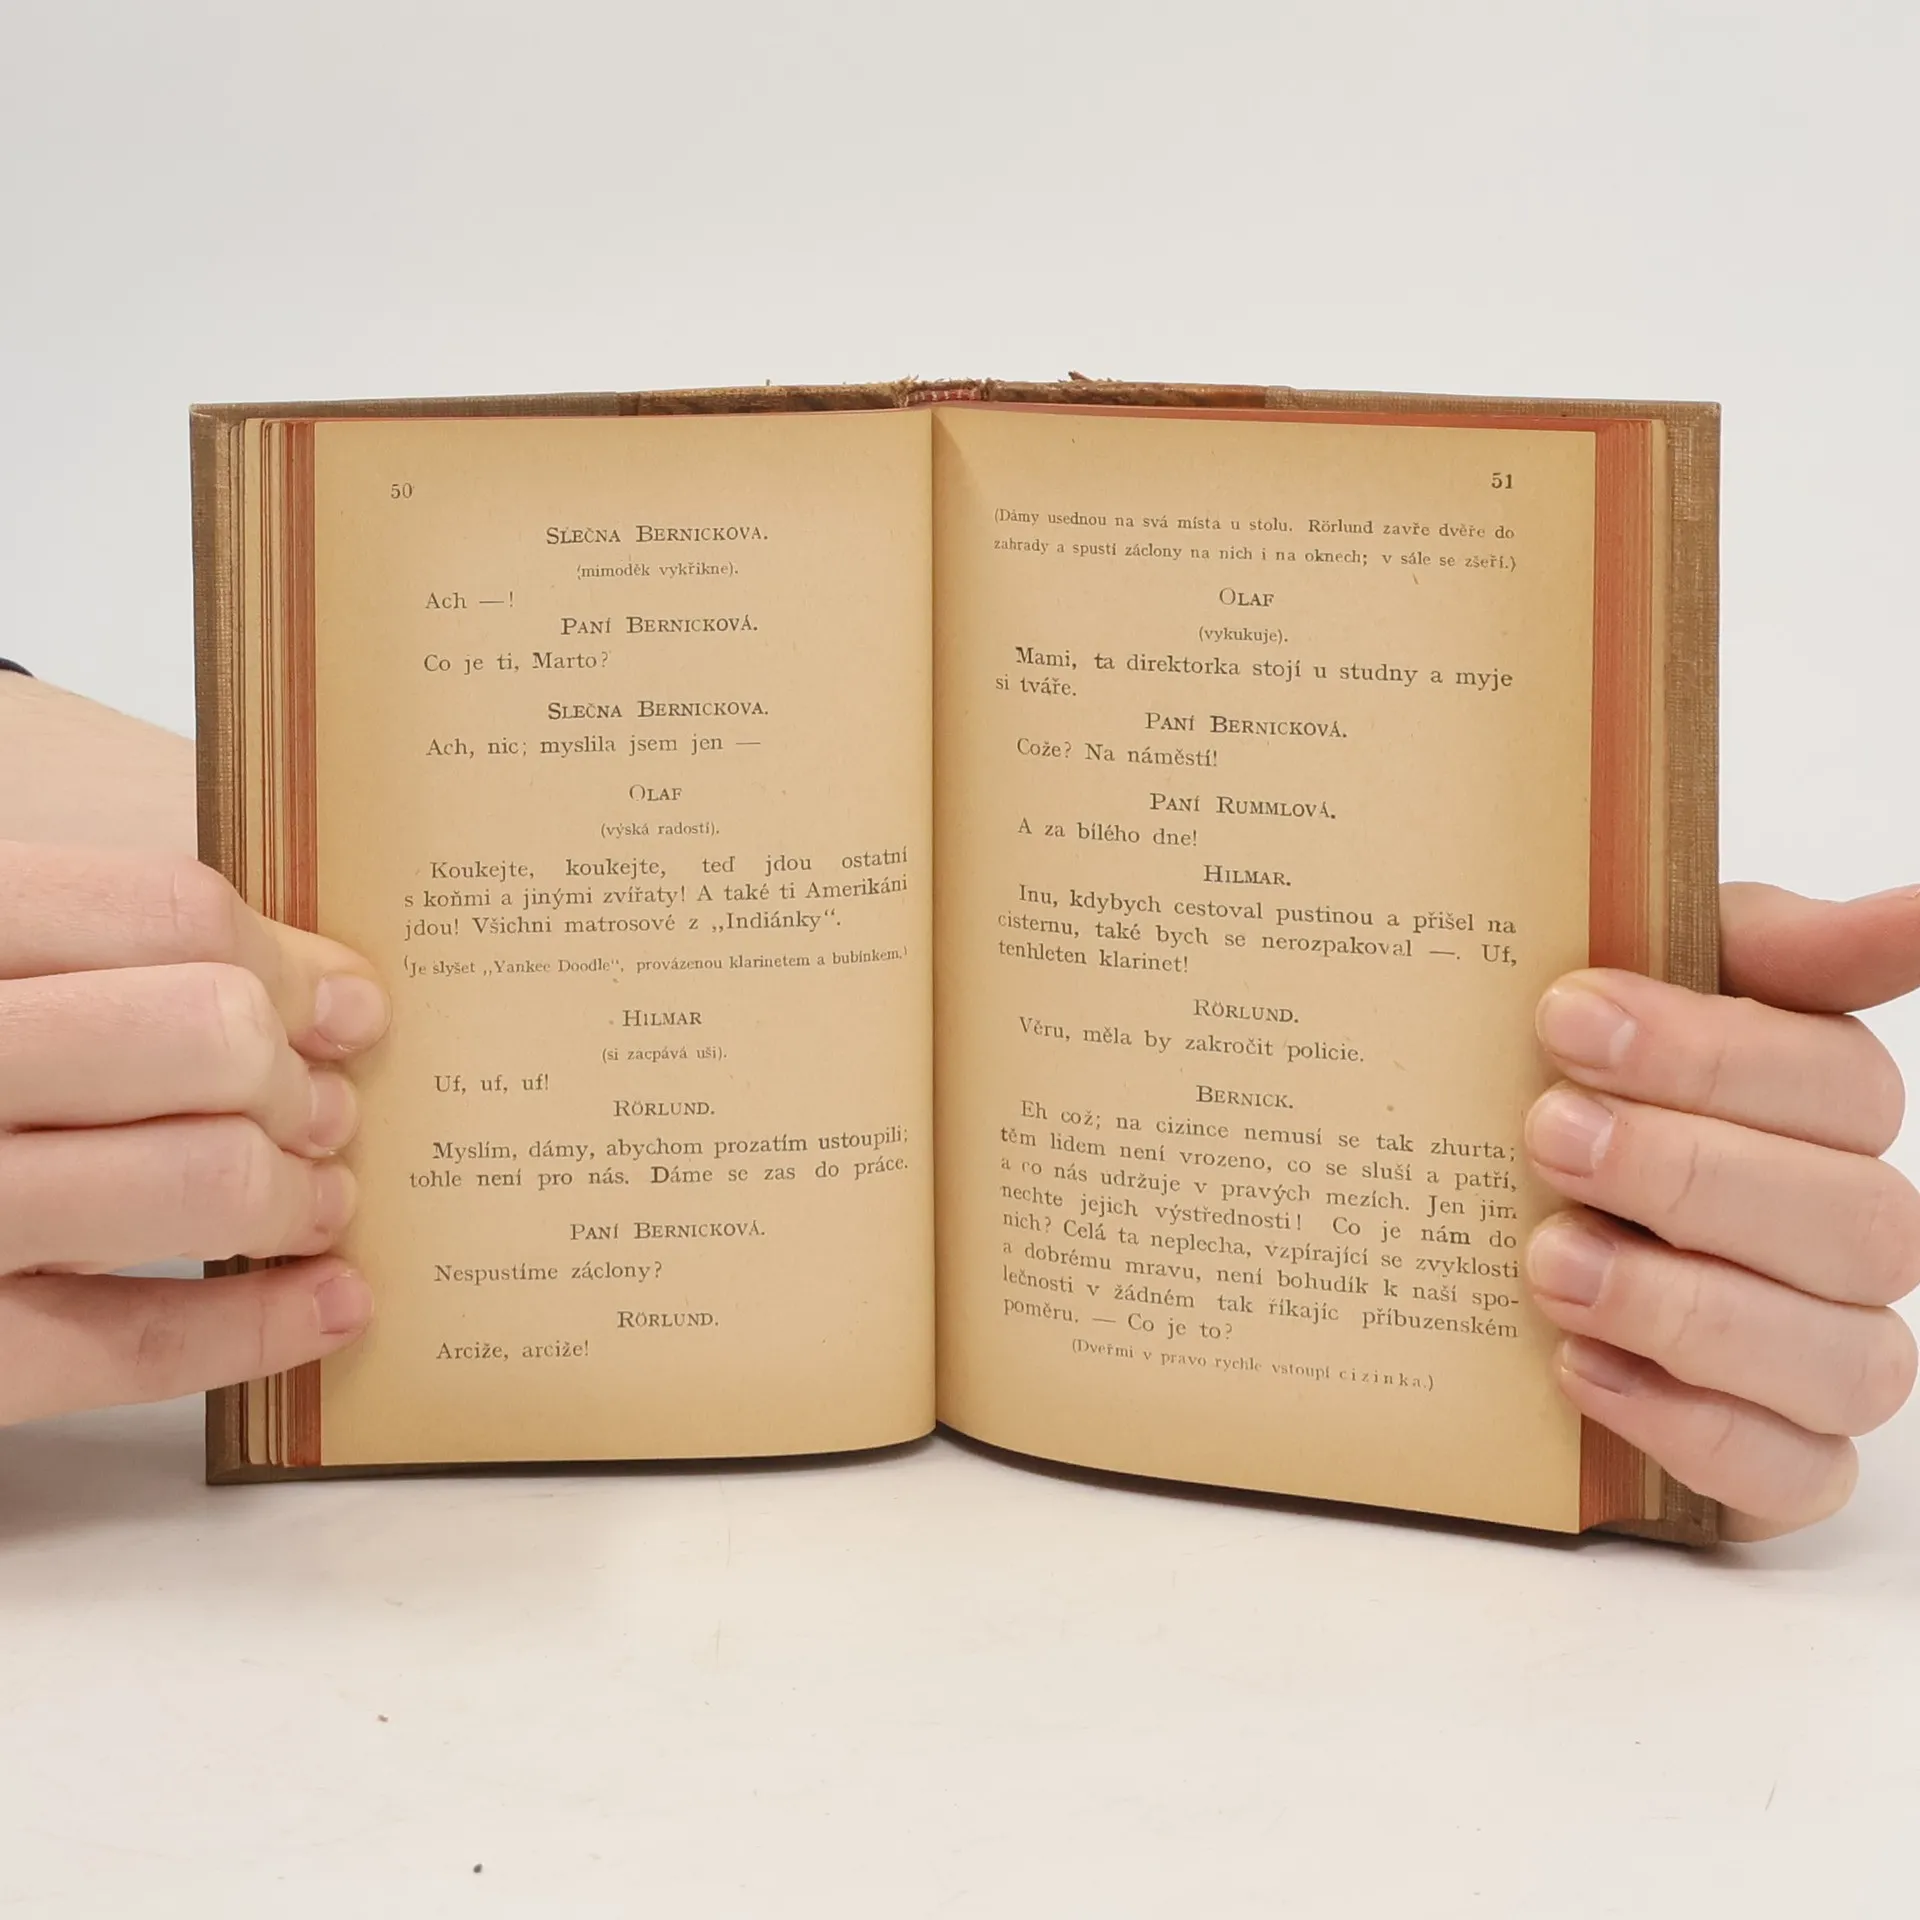 50
SLEČNA BERNICKOVA.
(mimoděk vykřikne).
Ach —!
PANÍ BERNICKOVÁ.
Co je ti, Marto?
SLEČNA BERNICKOVA.
Ach, nic; myslila jsem jen —
OLAF
(výská radostí).
Koukejte, koukejte, teď jdou ostatní
s koňmi a jinými zvířaty! A také ti Amerikáni
jdou! Všichni matrosové z „Indiánky“.
(Je slyšet „Yankee Doodle“, provázenou klarinetem a bubínkem.)
HILMAR
(si zacpává uši).
Uf, uf, uf!
RÖRLUND.
Myslím, dámy, abychom prozatím ustoupili;
tohle není pro nás. Dáme se zas do práce.
PANÍ BERNICKOVÁ.
Nespustíme záclony?
RÖRLUND.
Arciže, arciže!
51
(Dámy usednou na svá místa u stolu. Rörlund zavře dvéře do
zahrady a spustí záclony na nich i na oknech; v sále se zšeří.)
OLAF
(vykukuje).
Mami, ta direktorka stojí u studny a myje
si tváře.
PANÍ BERNICKOVÁ.
Cože? Na náměstí!
PANÍ RUMMLOVÁ.
A za bílého dne!
HILMAR.
Inu, kdybych cestoval pustinou a přišel na
cisternu, také bych se nerozpakoval —. Uf,
tenhleten klarinet!
RÖRLUND.
Věru, měla by zakročit policie.
BERNICK.
Eh což; na cizince nemusí se tak zhurta;
těm lidem není vrozeno, co se sluší a patří,
a co nás udržuje v pravých mezích. Jen jim
nechte jejich výstřednosti! Co je nám do
nich? Celá ta neplecha, vzpírající se zvyklosti
a dobrému mravu, není bohudík k naší spo-
lečnosti v žádném tak říkajíc příbuzenském
poměru. — Co je to?
(Dveřmi v pravo rychle vstoupí cizinka.)